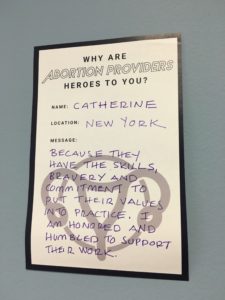 WHY ARE
ABORTION PROVIDERS
HEROES TO YOU?
NAME: CATHERINE
LOCATION: NEW YORK
MESSAGE:
BECAUSE THEY
HAVE THE SKILLS,
BRAVERY AND
COMMITMENT TO
PUT THEIR VALUES
INTO PRACTICE. I
AM HONORED AND
HUMBLED TO SUPPORT
THEIR WORK.